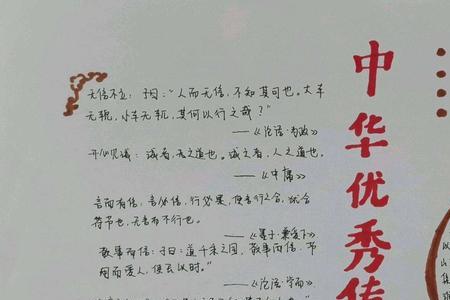 无信不立：子曰："人而无信，不知其可也。大车
无輗，小车无軏，其何以行之哉？"
——《论语·为政》
开心见诚：诚者，天之道也。诚之者，人之道也。
——《中庸》
言而有信：言必信，行必果，使言行之合，犹合
符节也，无言而不行也。
——《墨子·兼爱下》
敬事而信：子曰：道千乘之国，敬事而信，节
用而爱人，使民以时。"
——《论语·学而》
中华优秀传